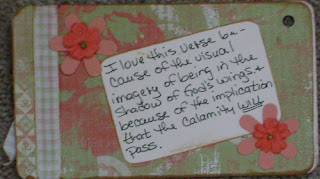 I love this verse be-
cause of the visual
imagery of being in the
shadow of God's wings &
because of the implication
that the calamity will
pass.